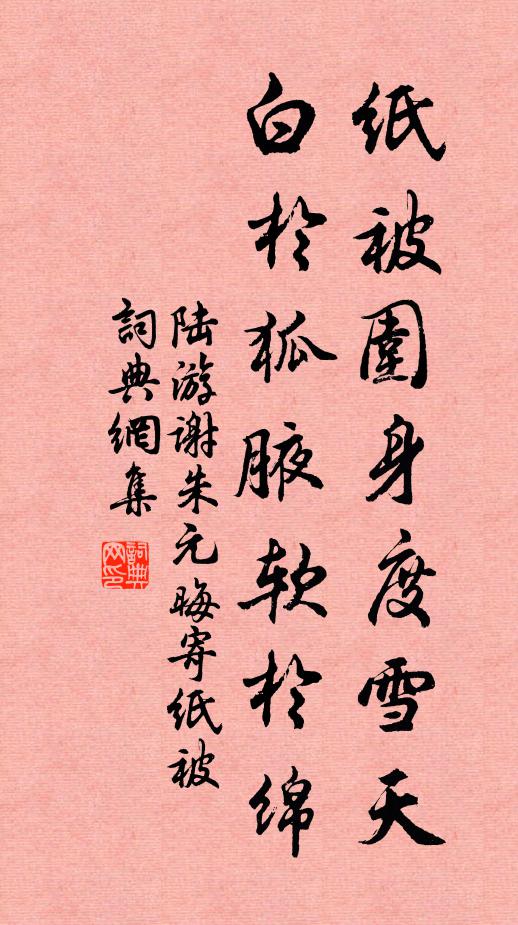 纸被围身度雪天
白於狐腋软於绵
陆游谢朱元晦寄纸被
詞典網集
詞典
网印